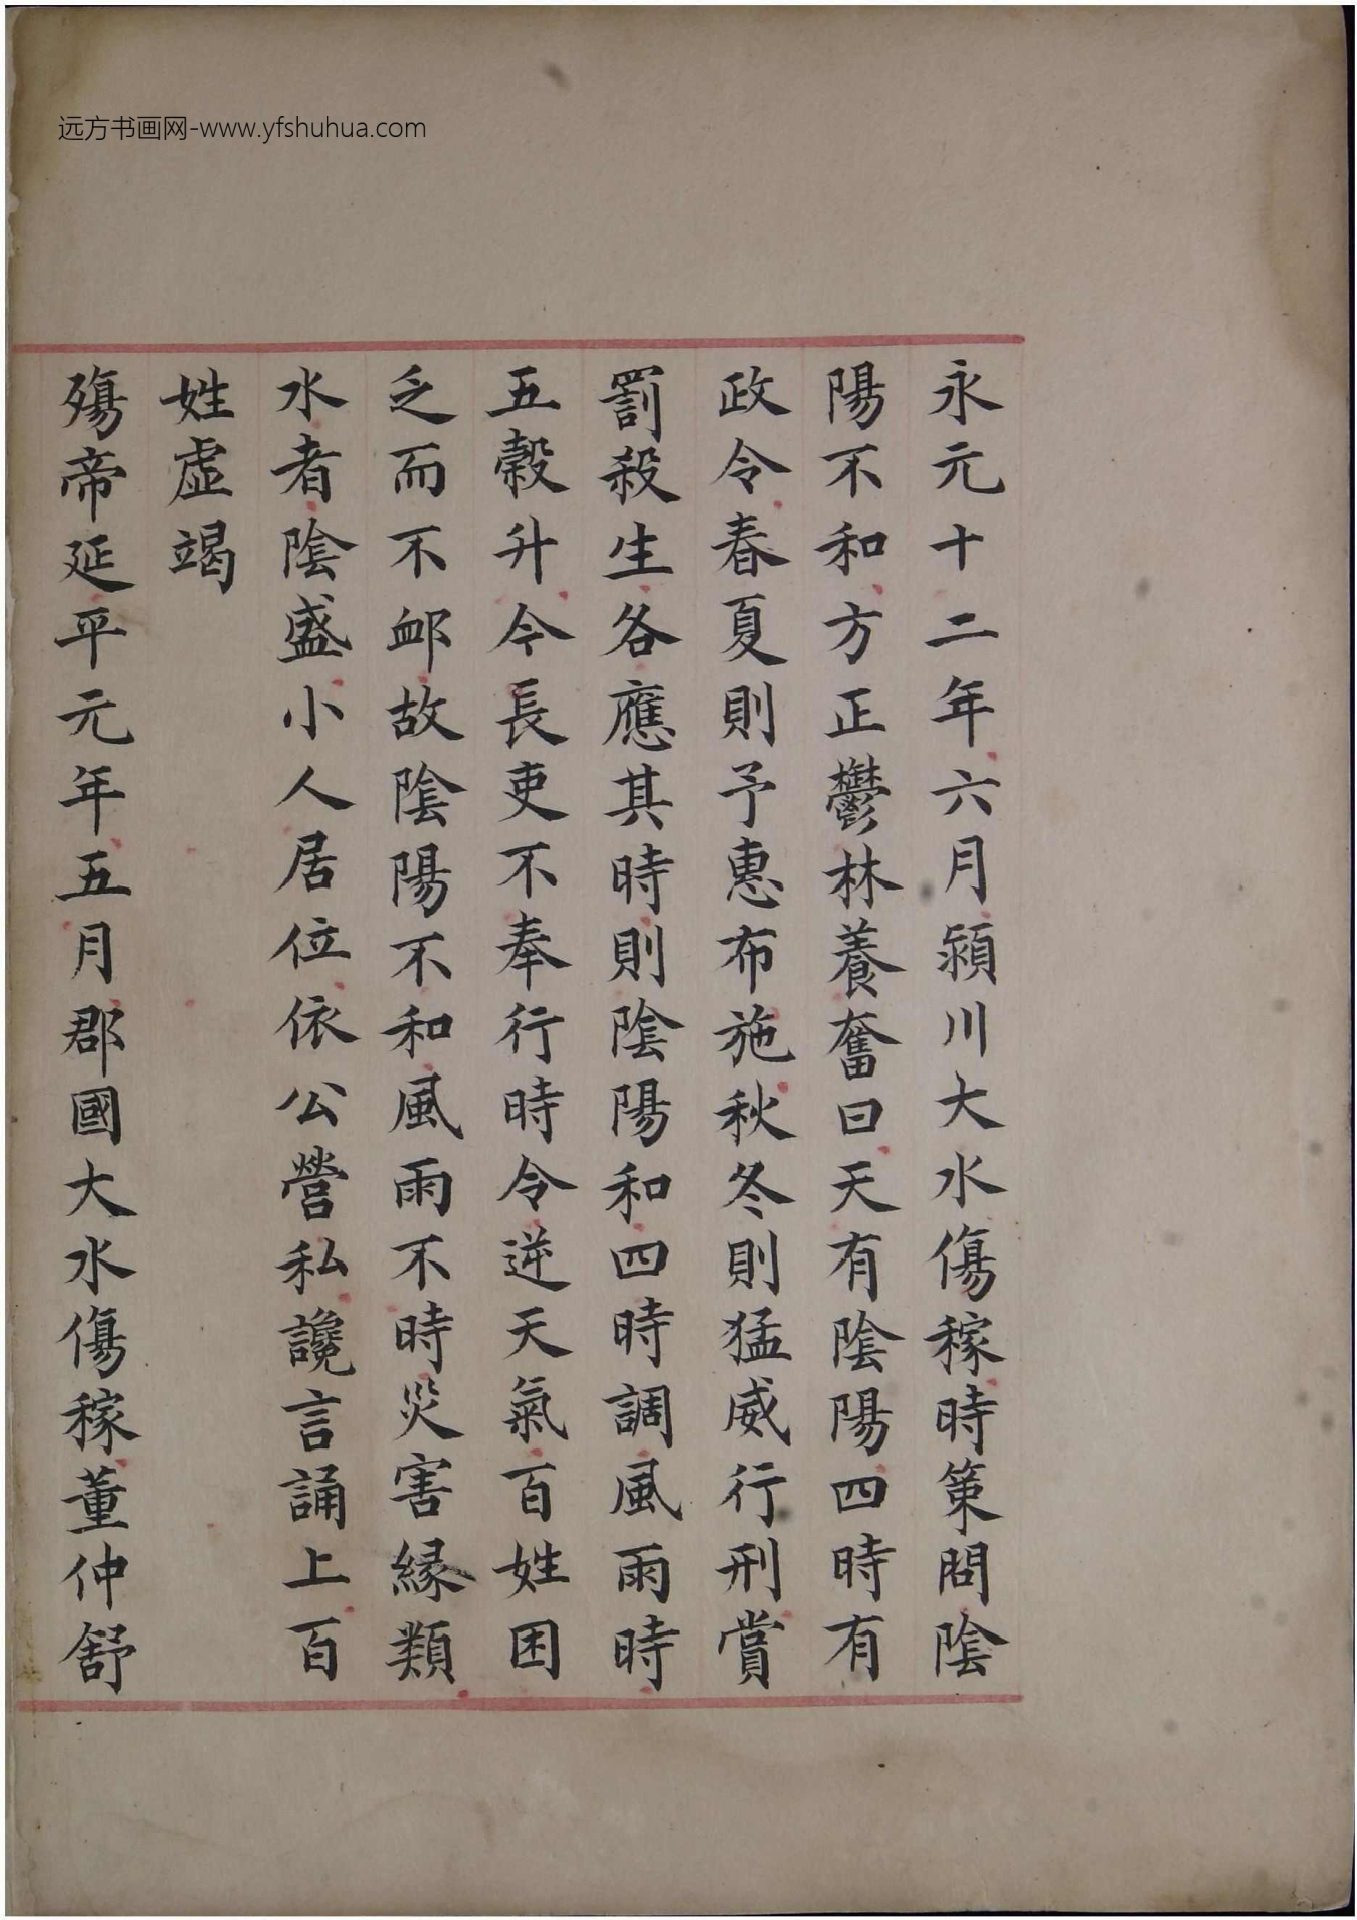 远方书画网-www.yfshuhua.com
永元十二年六月潁川大水傷稼時策問陰
陽不和方正鬱林養奮曰天有陰陽四時有
政令春夏則予惠布施秋冬則猛威行刑賞
罰殺生各應其時則陰陽和四時調風雨時
五穀升今長吏不奉行時令逆天氣百姓困
乏而不卹故陰陽不和風雨不時災害緣類
水者陰盛小人居位依公營私讒言誦上百
姓虛竭
殤帝延平元年五月郡國大水傷稼董仲舒